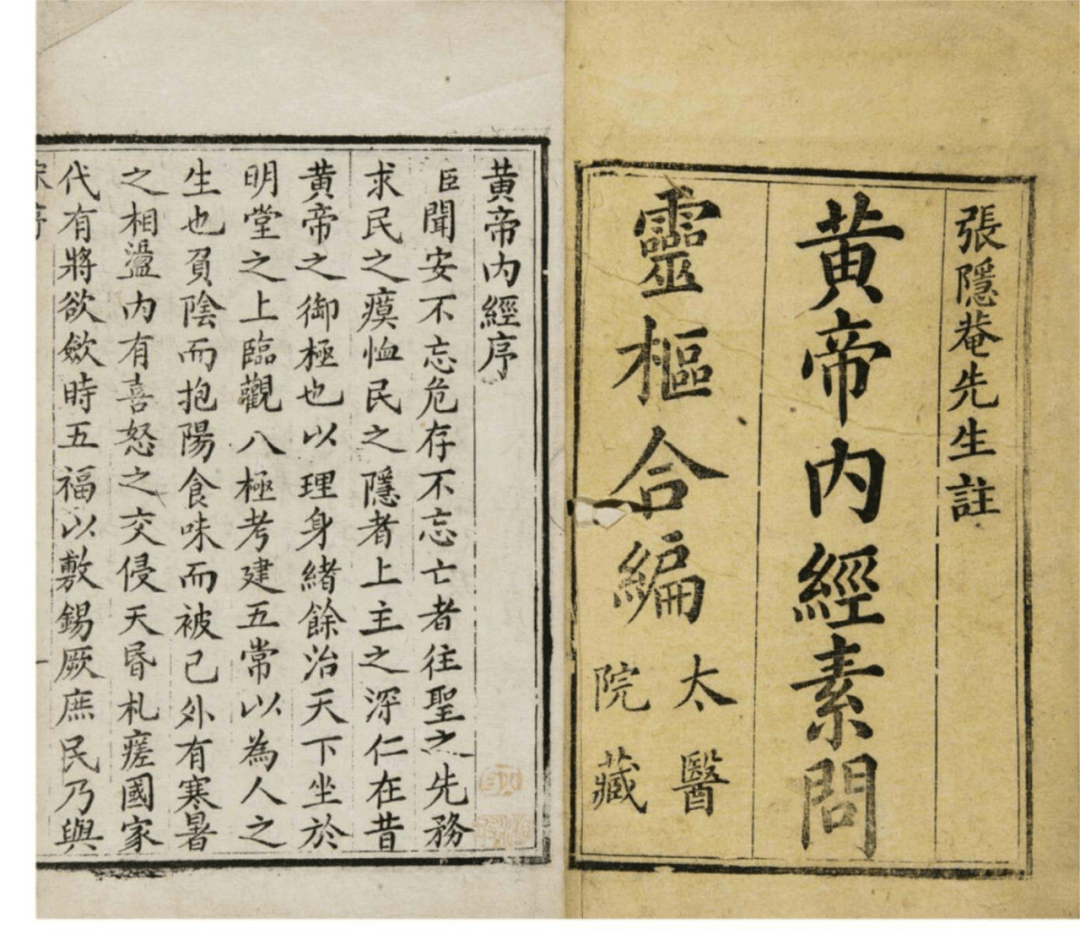 張隱菴先生註
黃帝內經素問
靈樞合編
太醫
院藏
黃帝內經序
臣聞安不忘危存不忘亡者往聖之先務
求民之瘼恤民之隱者上主之深仁在昔
黃帝之御極也以理身緒餘治天下坐於
明堂之上臨觀八極考建五常以為人之
生也負陰而抱陽食味而被已外有寒暑
之相盪內有喜怒之交侵夭昬札瘥國家
代有將欲斂時五福以敷錫厥庶民乃與
宋序
一